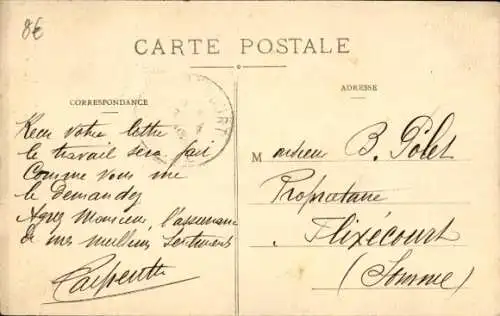 8€
CARTE POSTALE
CORRESPONDANCE
ADRESSE
Recu votre lettre
le travail sera fait
Comme vous me
le demandez
Agrez Monsieur, l'assurance
de mes meilleurs Sentiments
Carpentier
Monsieur B. Polet
Propriétaire
Flixécourt
(Somme)